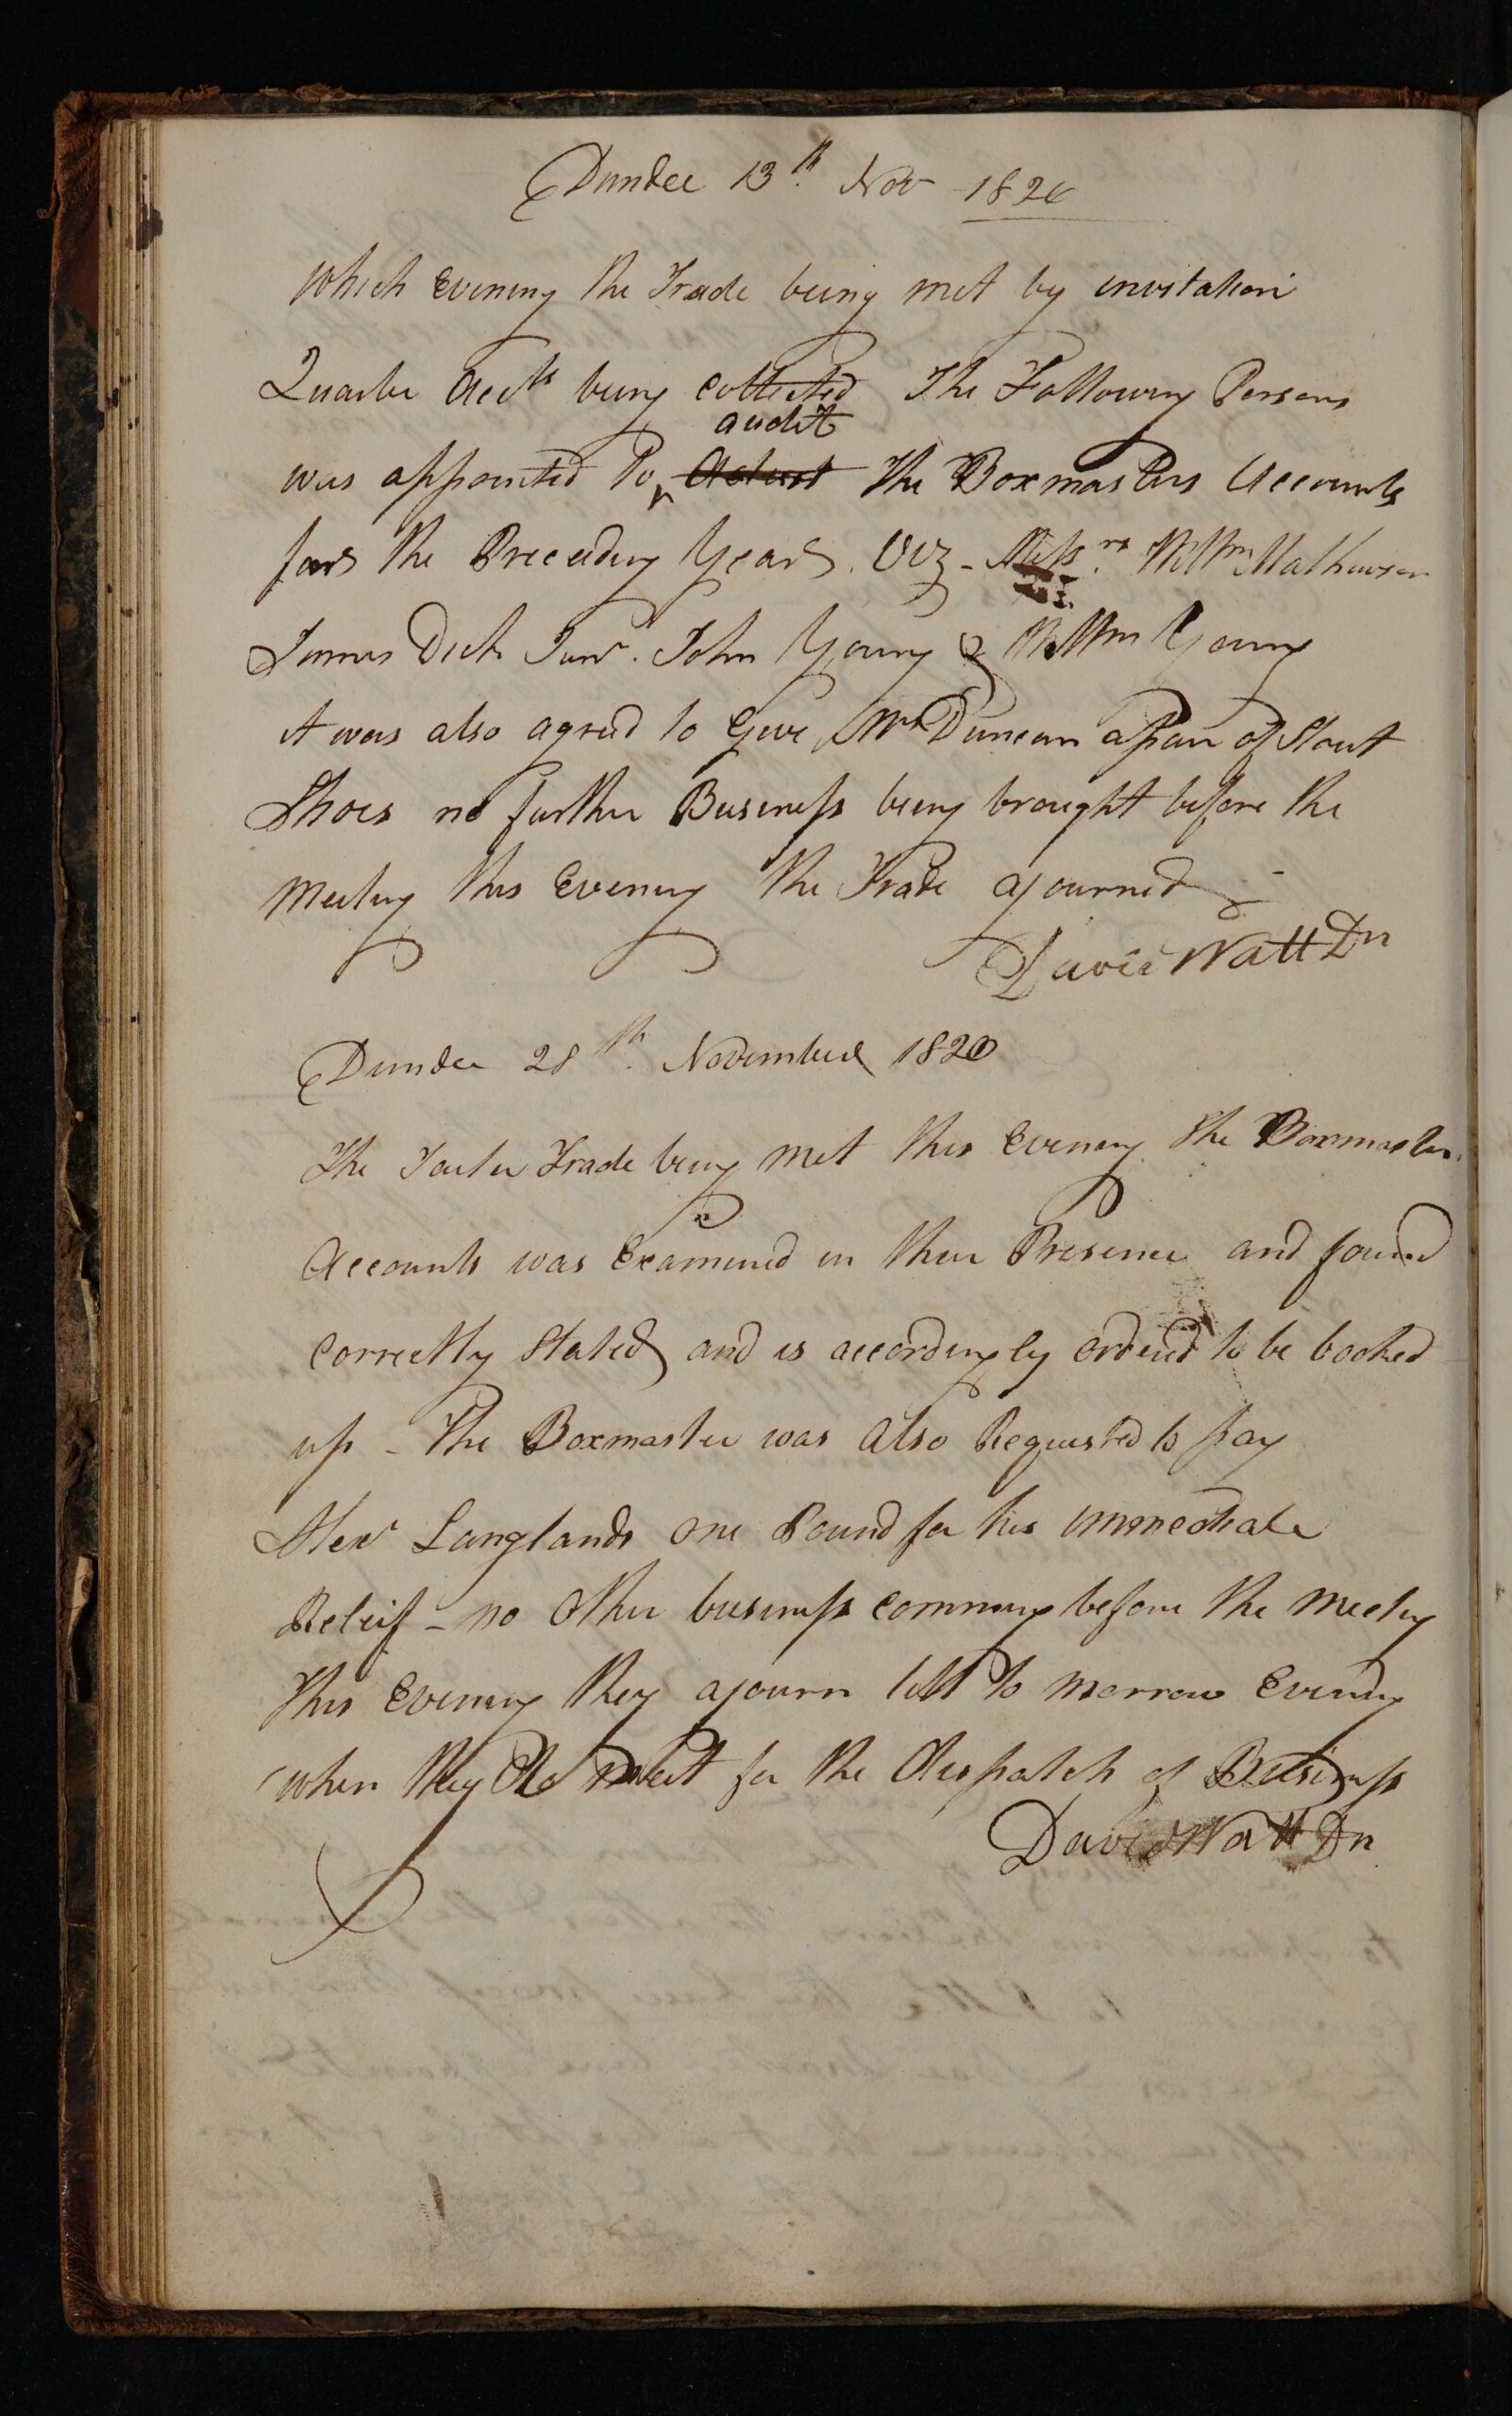 Dundee 13th. Nov 1820
Which Evening the Trade being met by invitation
Quarter Accts being Collected The Following Persons
audit
was appointed to the Boxmasters Accounts
for the Preceeding Year. Viz - Messrs. Willm Mathewson
James Dick Junr. John Young & Willm Young
it was also agreed to Give Wm Duncan a Pair of Stout
Shoes no further Business being brought before the
Meeting this Evening the Trade ajourned
David Watt Dn
Dundee 28th. November 1820
The Tailer Trade being met this Evening the Boxmasters
Accounts was Examined in their Presence and found
Correctly Stated and is accordingly ordered to be booked
up - The Boxmaster was Also Requested to pay
Alexr Langlands one Pound for his immediate
Releif - no Other business comming before the Meeting
this Evening they ajourn till to morrow Evening
when they meet for the dispatch of Business
David Watt Dn